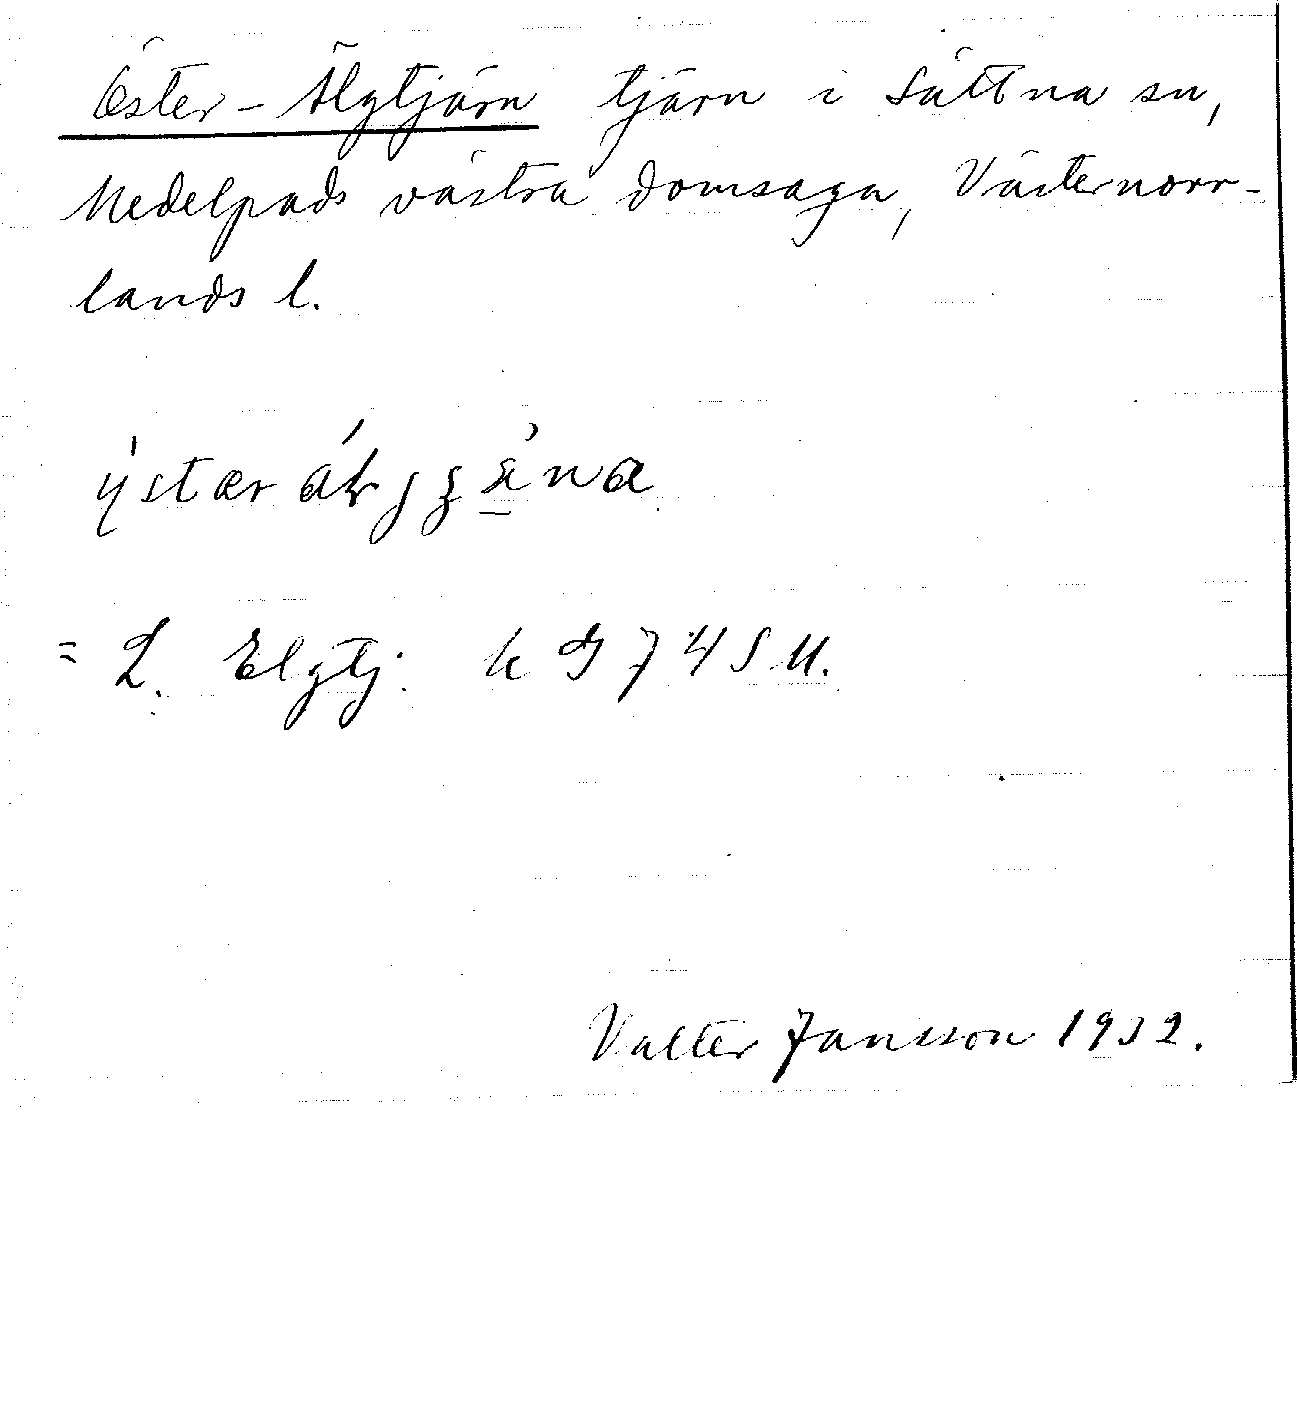 Öster-Älgtjärn tjärn i Sättna sn,
Medelpads västra domsaga, Västernorr-
lands l.
= L. Elgtj. k
Valter Jansson 1932.